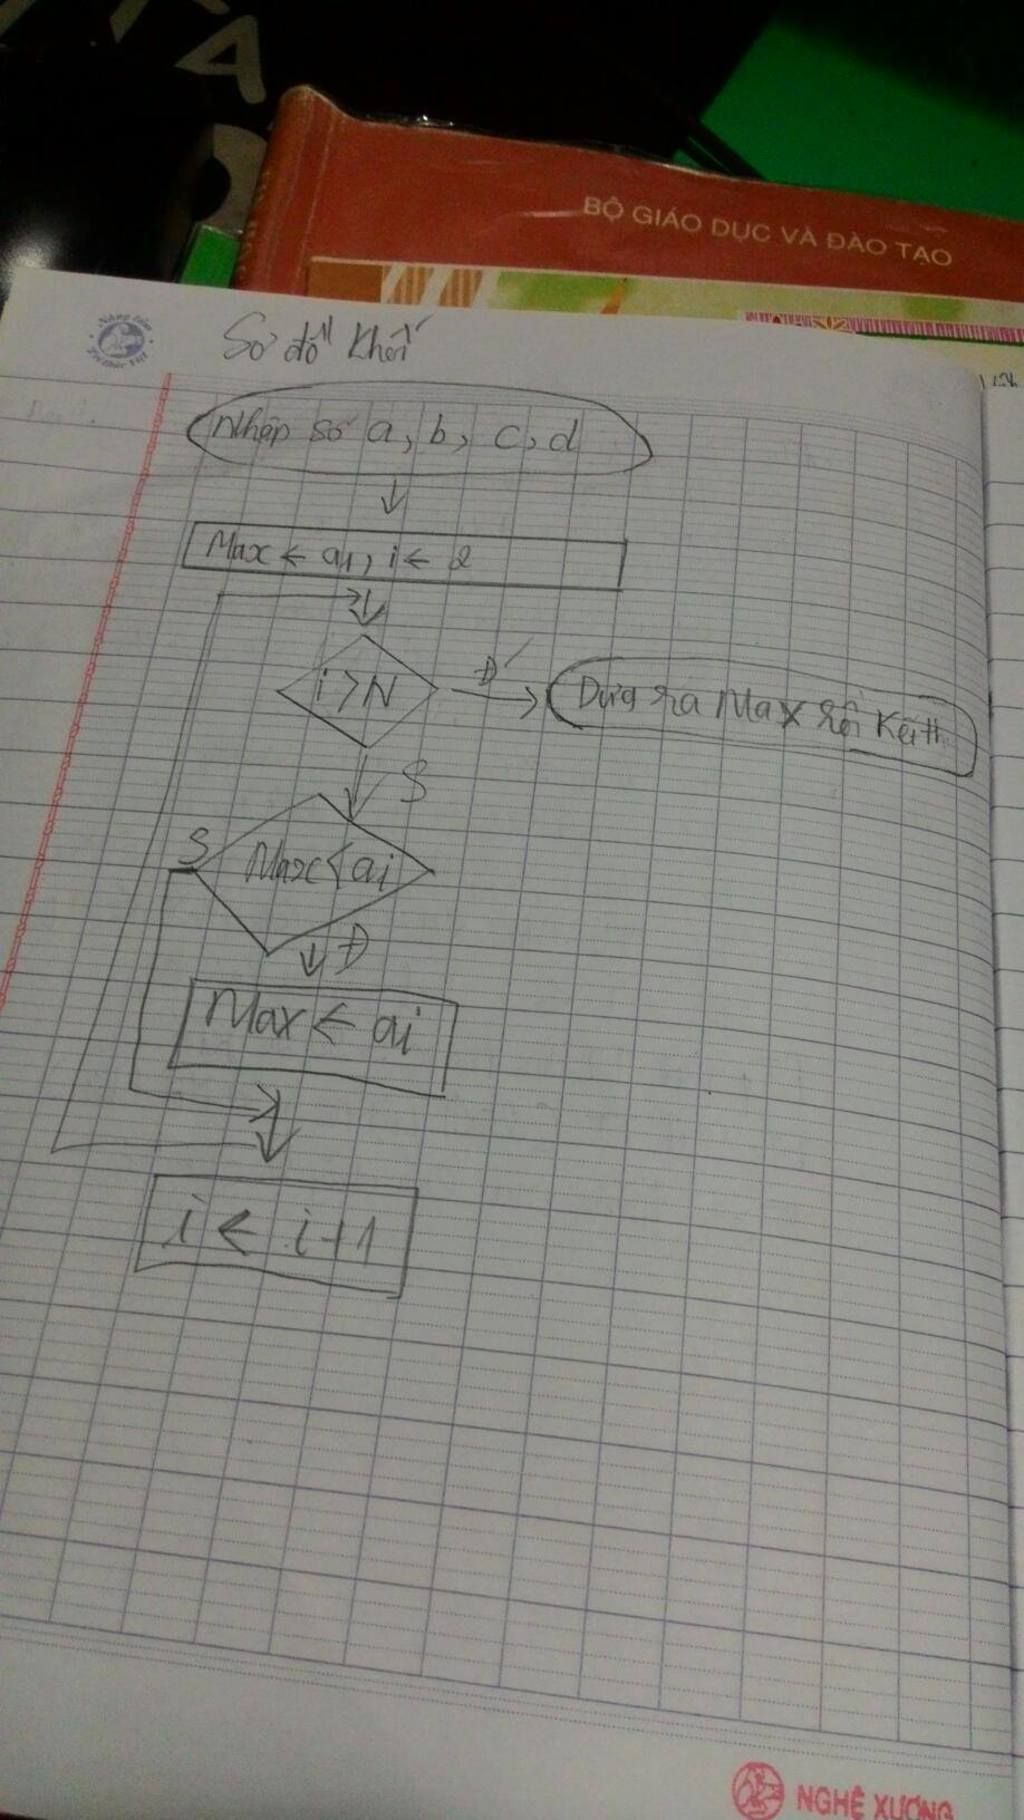 BỘ GIÁO DỤC VÀ ĐÀO TẠO
Nâng tầm
Tri thức Việt
Sơ đồ khối
Nhập số a, b, c, d
Max ← a1, i ← 2
i > N
Đ
Đưa ra Max rồi Kết th
S
S
Max < ai
Đ
Max ← ai
i ← i+1
NGHỆ XƯƠNG